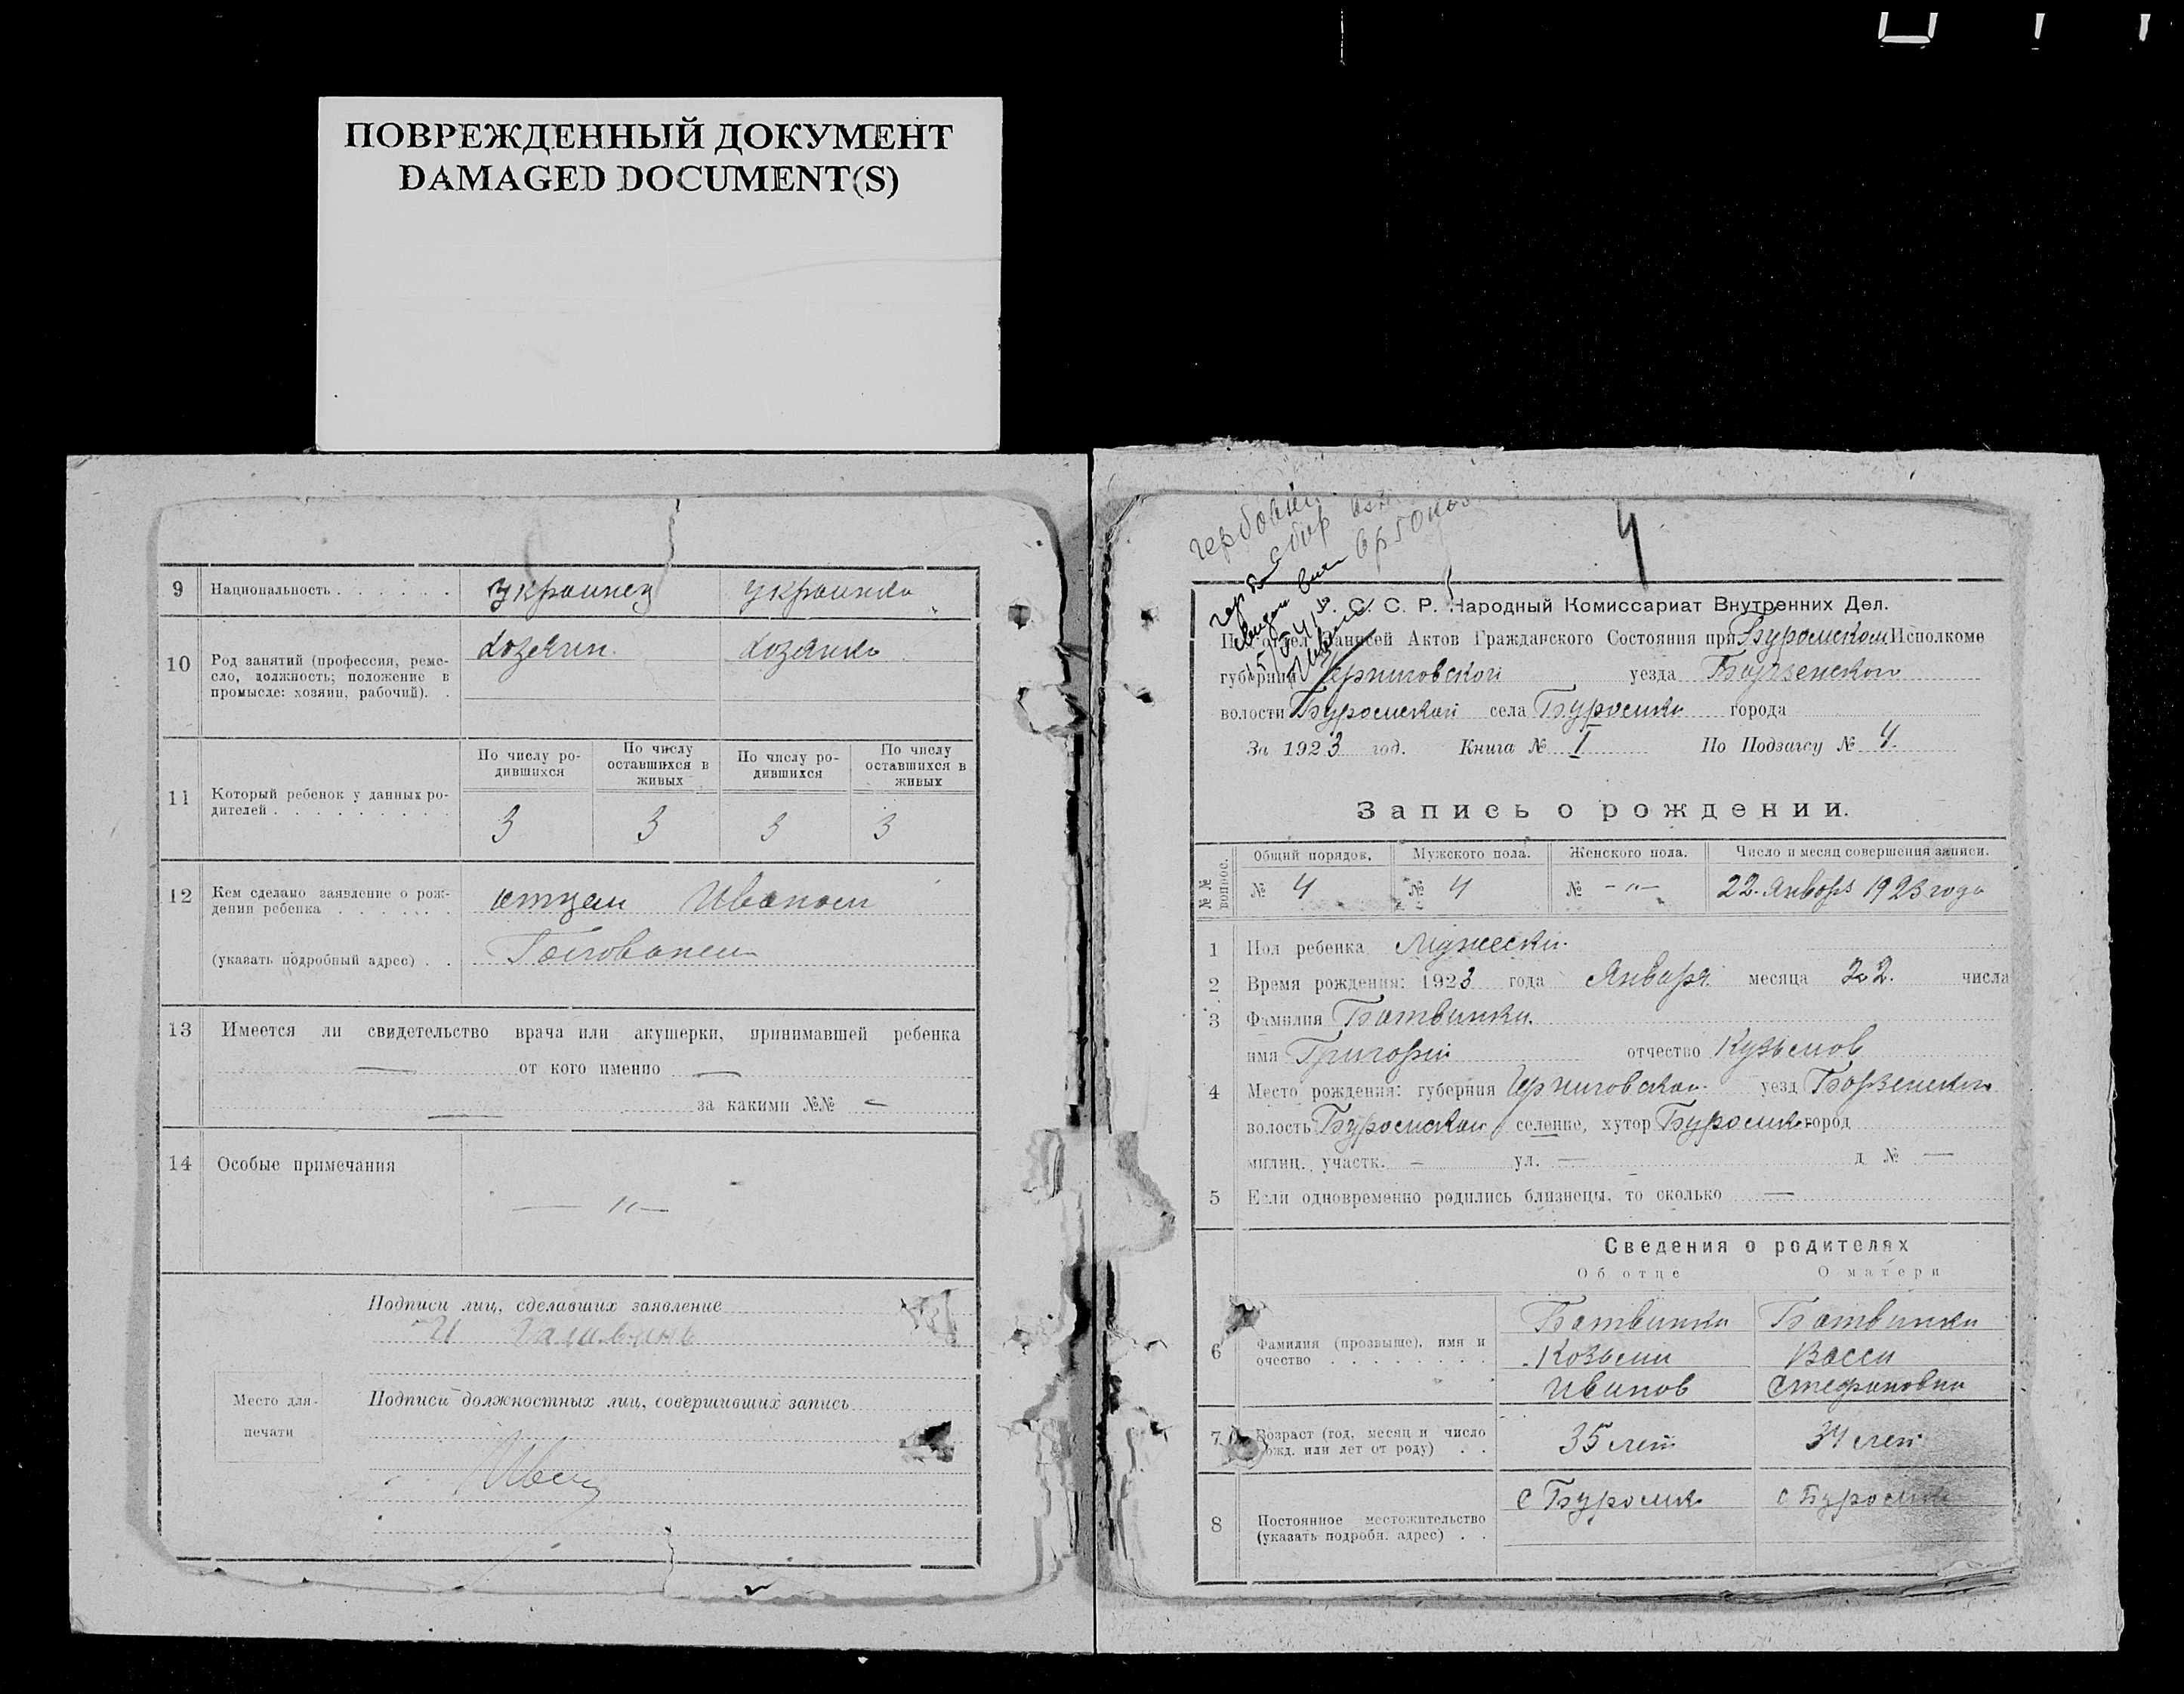 ПОВРЕЖДЕННЫЙ ДОКУМЕНТ
DAMAGED DOCUMENT(S)
9 Национальность украинец украинка
10 Род занятий (профессия, ремесло, должность; положение в промысле: хозяин, рабочий). хозяин хозяйка
11 Который ребенок у данных родителей
По числу родившихся По числу оставшихся в живых По числу родившихся По числу оставшихся в живых
3 3 3 3
12 Кем сделано заявление о рождении ребенка отцем Иваном
(указать подробный адрес) Головонем
13 Имеется ли свидетельство врача или акушерки, принимавшей ребенка
— от кого именно —
— за какими №№ —
14 Особые примечания
— " —
Подписи лиц, сделавших заявление
И
Место для печати
Подписи должностных лиц, совершивших запись
4
гербовый
сбор
С. С. Р. Народный Комиссариат Внутренних Дел.
Записей Актов Гражданского Состояния при Буромском Исполкоме
губернии Черниговской уезда Борзенского
волости Буромской села Буромка города
За 1923 год. Книга № I По Подзагсу № 4.
Запись о рождении.
№№ вопрос. Общий порядок. Мужского пола. Женского пола. Число и месяц совершения записи.
№ 4 № 4 № -"- 22 Январь 1923 года
1 Пол ребенка Мужески
2 Время рождения: 1923 года Января месяца 22. числа
3 Фамилия Ботвинки
имя Григорий отчество Кузьмов
4 Место рождения: губерния Черниговская уезд Борзенского
волость Буромская селение, хутор Буромка город
милиц. участк. – ул. — д № —
5 Если одновременно родились близнецы, то сколько —
Сведения о родителях
Об отце О матери
6 Фамилия (прозвыще), имя и очество
Ботвинки Ботвинки
Козьми Васси
Иванов Стефановни
7 Возраст (год, месяц и число рожд. или лет от роду) 35 лет 34 лет
8 Постоянное местожительство (указать подробн. адрес) с Буромк с Буромк